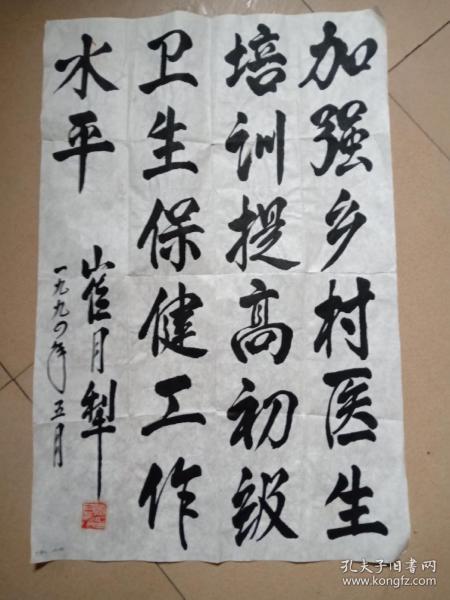 加强乡村医生
培训提高初级
卫生保健工作
水平
崔月犁
一九九四年五月
孔夫子旧书网
www.kongfz.com